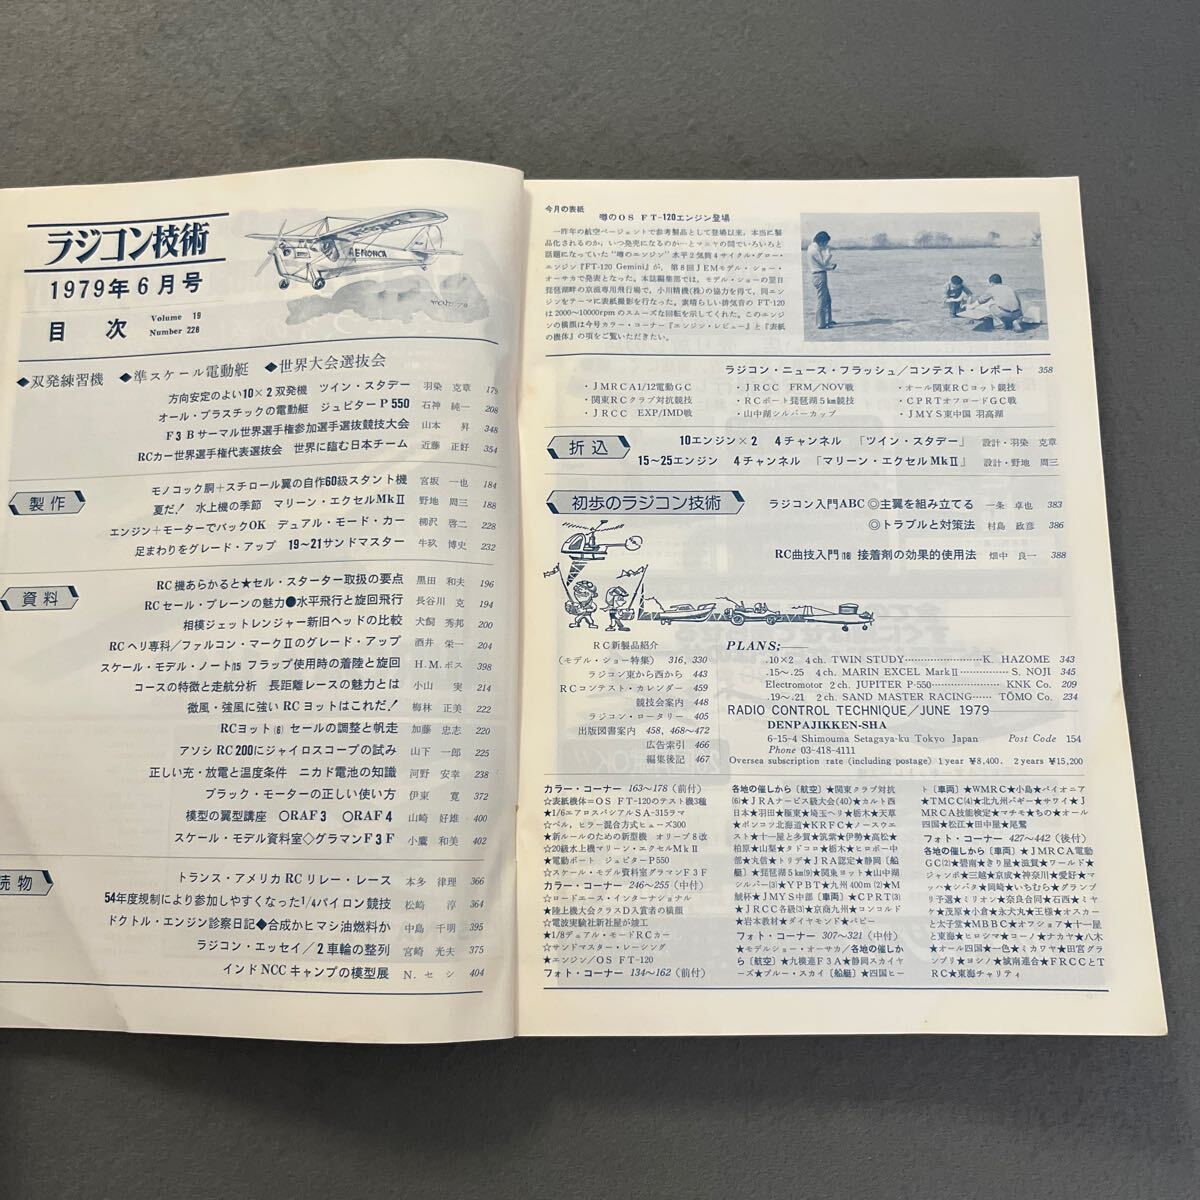 ラジコン技術
1979年6月号
目次 Volume 19 Number 228
AERONCA
◆双発練習機 ◆準スケール電動艇 ◆世界大会選抜会
方向安定のよい10×2双発機 ツイン・スタデー 羽染 克章 179
オール・プラスチックの電動艇 ジュピターP550 石神 純一 208
F3Bサーマル世界選手権参加選手選抜競技大会 山本 昇 348
RCカー世界選手権代表選抜会 世界に臨む日本チーム 近藤 正好 354
製作
モノコック胴+スチロール翼の自作60級スタント機 宮坂 一也 184
夏だ！ 水上機の季節 マリーン・エクセルMkⅡ 野地 周三 188
エンジン+モーターでバックOK デュアル・モード・カー 柳沢 啓二 228
足まわりをグレード・アップ 19〜21サンドマスター 牛玖 博史 232
資料
RC機あらかると★セル・スターター取扱の要点 黒田 和夫 196
RCセール・プレーンの魅力●水平飛行と旋回飛行 長谷川 克 194
相模ジェットレンジャー新旧ヘッドの比較 犬飼 秀邦 200
RCヘリ専科/ファルコン・マークⅡのグレード・アップ 酒井 栄一 204
スケール・モデル・ノート⒂ フラップ使用時の着陸と旋回 H.M.ボス 398
コースの特徴と走航分析 長距離レースの魅力とは 小山 実 214
微風・強風に強いRCヨットはこれだ！ 梅林 正美 222
RCヨット⑹ セールの調整と帆走 加藤 忠志 220
アソシRC200にジャイロスコープの試み 山下 一郎 225
正しい充・放電と温度条件 ニカド電池の知識 河野 安幸 238
ブラック・モーターの正しい使い方 伊東 寛 372
模型の翼型講座 ○RAF3 ○RAF4 山崎 好雄 400
スケール・モデル資料室◇グラマンF3F 小鷹 和美 402
読物
トランス・アメリカRCリレー・レース 本多 律理 366
54年度規制により参加しやすくなった1/4パイロン競技 松崎 淳 364
ドクトル・エンジン診察日記◆合成かヒマシ油燃料か 中島 千明 395
ラジコン・エッセイ/2車輪の整列 宮崎 光夫 375
インドNCCキャンプの模型展 N.セシ 404
今月の表紙
噂のOS FT-120エンジン登場
一昨年の航空ページェントで参考製品として登場以来，本当に製
品化されるのか，いつ発売になるのか…とマニヤの間でいろいろと
話題になっていた“噂のエンジン”水平2気筒4サイクル・グロー・
エンジン『FT-120 Gemini』が，第8回JEMモデル・ショー・
オーサカで発表となった。本誌編集部では，モデル・ショーの翌日
琵琶湖畔の京滋専用飛行場で，小川精機(株)の協力を得て，同エン
ジンをテーマに表紙撮影を行なった。素晴らしい排気音のFT-120
は2000〜10000rpmのスムーズな回転を示してくれた。このエンジ
ンの横顔は今号カラー・コーナー『エンジン・レビュー』と『表紙
の機体』の項をご覧いただきたい。
ラジコン・ニュース・フラッシュ/コンテスト・レポート 358
・JMRCA1/12電動GC ・JRCC FRM/NOV戦 ・オール関東RCヨット競技
・関東RCクラブ対抗競技 ・RCボート琵琶湖5㎞競技 ・CPRTオフロードGC戦
・JRCC EXP/IMD戦 ・山中湖シルバーカップ ・JMYS東中国 羽高湖
折込
10エンジン×2 4チャンネル 「ツイン・スタデー」 設計・羽染 克章
15〜25エンジン 4チャンネル 「マリーン・エクセルMkⅡ」 設計・野地 周三
初歩のラジコン技術
ラジコン入門ABC◎主翼を組み立てる 一条 卓也 383
◎トラブルと対策法 村島 政彦 386
RC曲技入門⒅ 接着剤の効果的使用法 畑中 良一 388
RC新製品紹介
(モデル・ショー特集) 316, 330
ラジコン東から西から 443
RCコンテスト・カレンダー 459
競技会案内 448
ラジコン・ロータリー 405
出版図書案内 458, 468〜472
広告索引 466
編集後記 467
PLANS;
.10×2 4 ch. TWIN STUDY K. HAZOME 343
.15〜.25 4 ch. MARIN EXCEL MarkⅡ S. NOJI 345
Electromotor 2 ch. JUPITER P-550 KNK Co. 209
.19〜.21 2 ch. SAND MASTER RACING TŌMO Co. 234
RADIO CONTROL TECHNIQUE/JUNE 1979
DENPAJIKKEN-SHA
6-15-4 Shimouma Setagaya-ku Tokyo Japan Post Code 154
Phone 03-418-4111
Oversea subscription rate (including postage) 1 year ¥8,400. 2 years ¥15,200
カラー・コーナー 163〜178 (前付)
☆表餓機体=OS FT-120のテスト機3種
★1/6エアロスバシアルSA-315ラマ
☆ベル，ヒラー混合方式ヒューズ300
★新ルールのための新型機 オリーブ8改
☆20級水上機マリーン・エクセルMkⅡ
★電動ボート ジュピターP550
☆スケール・モデル資料室グラマンF3F
カラー・コーナー 246〜255 (中付)
☆ロードエース・インターナショナル
★陸上機大会クラスD入賞者の横顔
☆電波実験社新社屋が竣工
★1/8デュアル・モードRCカー
☆サンドマスター・レーシング
★エンジン/OS FT-120
フォト・コーナー 134〜162 (前付)
各地の催しから〔航空〕★関東クラブ対抗
⑹★JRAナービス級大会(40)★カルト西
日本★羽田★極東★埼玉ヘリ★栃木★天草
★ポンコツ北海道★KRFC★ノースウエ
スト★十一屋と多賀★筑紫★伊勢★高松★
柏原★山梨★タドコロ★栃木★ヒロボー中
部★丸信★トリデ★JRA認定★静岡〔船
艇〕★琵琶湖5㎞⑼★ワールド★山中湖
シルバー⑶★YPBT★九州400m⑵★M
鯱杯★JMYS中部〔車両〕★CPRT⑶
★JRCC各級⑶★京商九州★コンコルド
★岩本教材★ダイヤモンド★パピー
フォト・コーナー 307〜321 (中付)
★モデルショー・オーサカ/各地の催しか
ら〔航空〕★九模連F3A★静岡スカイヤ
ーズ★ブルー・スカイ〔船艇〕★四国ヒー
ト〔車両〕★WMRC★小島★パイオニア
★TMCC⑷★北九州バギー★サワイ★J
MRCA技能検定★マチモ★ちの★オール
四国★松江★田中屋★尾鷲
フォト・コーナー 427〜442 (後付)
各地の催しから〔車両〕★JMRCA電動
GC⑵★碧南★きり屋★滋賀★ワールド★
ジャンボ★三越★京応★神奈川★愛好★マ
ッハ★シバタ★岡崎★いちむら★グランプ
リ予選★ミリオン★奈良合同★石西★ミヤ
ケ★茂原★小倉★永大丸★王様★オスカー
と太子堂★MBBC★オフショア★十一屋
と東海★ヒロシマ★コーノ★ナカヤ★八木
★オール四国★一色★ミカワヤ★田宮グラ
ンプリ★ヨシノ★城南連合★FRCCとT
RC★東海チャリティ